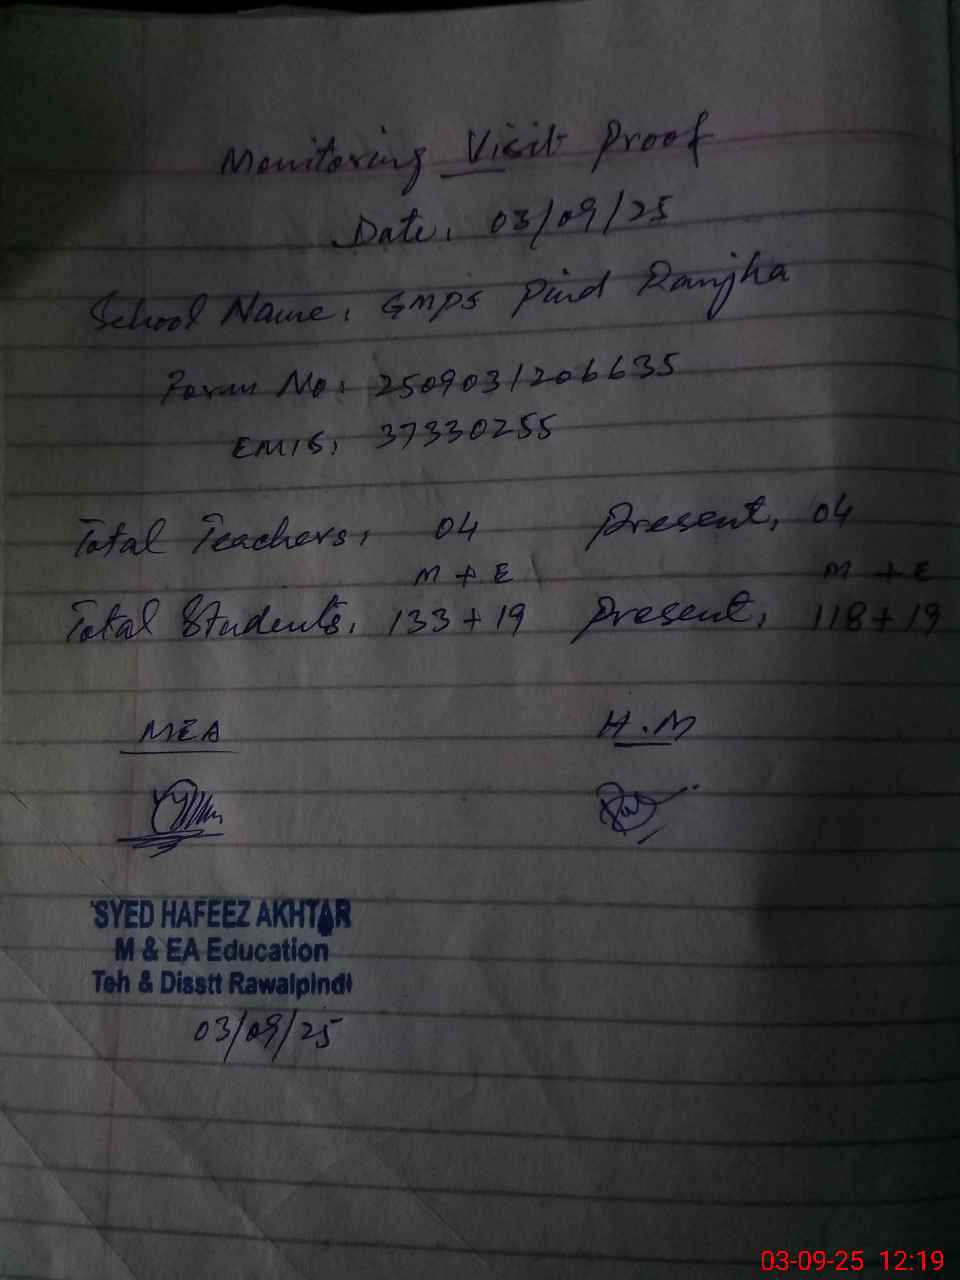 Monitoring Visit Proof
Date: 03/09/25
School Name: GMPS Pind Ranjha
Form No: 2509031206635
EMIS: 37330255
Total Teachers: 04 Present: 04
M + E M + E
Total Students: 133 + 19 Present: 118 + 19
MEA H.M
SYED HAFEEZ AKHTAR
M & EA Education
Teh & Disstt Rawalpindi
03/09/25
03-09-25 12:19